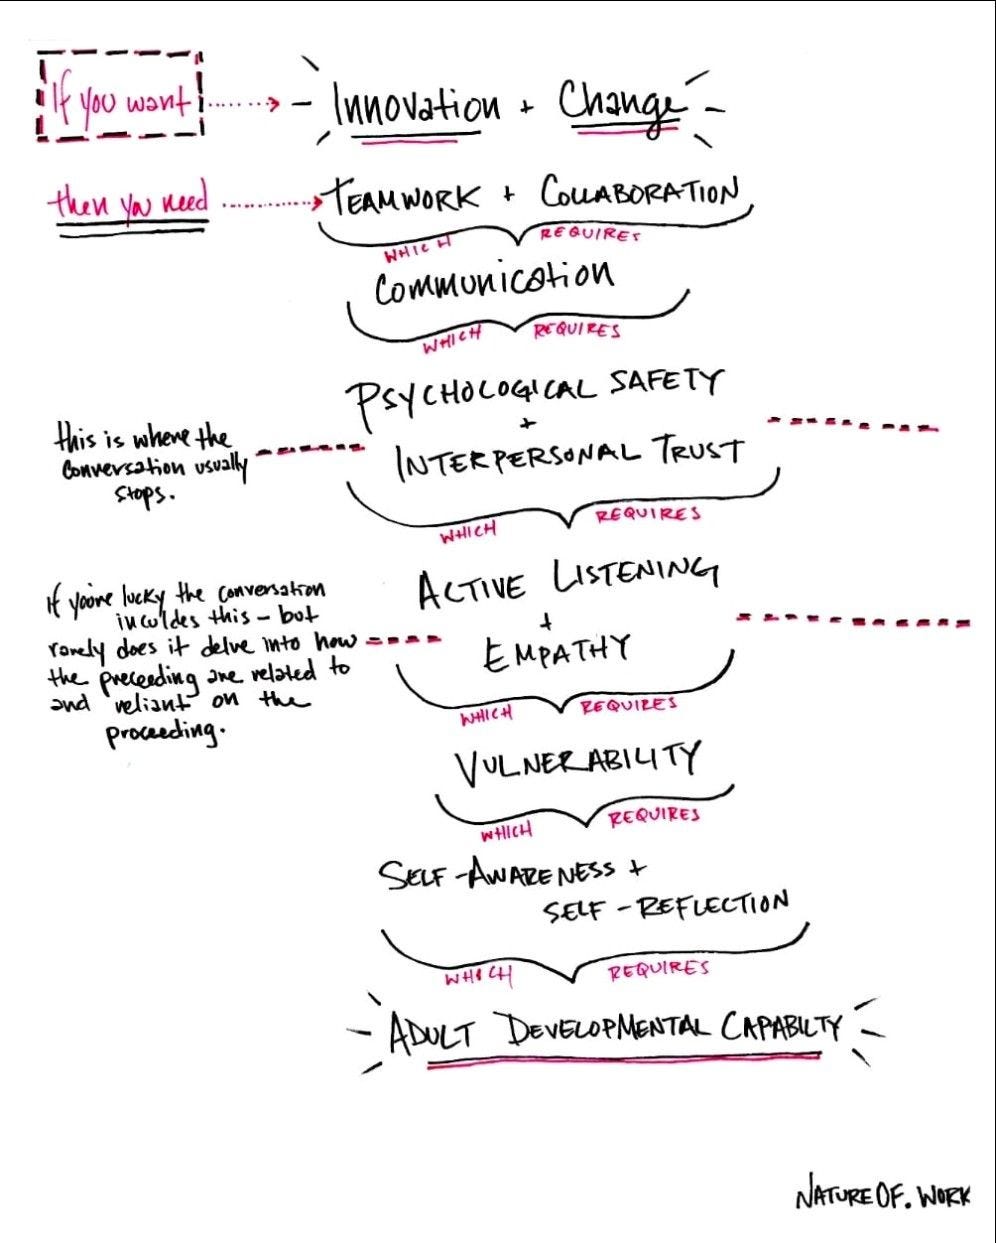 If you want
Innovation + Change
then you need
TEAMWORK + COLLABORATION
WHICH REQUIRES
Communication
WHICH REQUIRES
PSYCHOLOGICAL SAFETY
+
INTERPERSONAL TRUST
this is where the
conversation usually
stops.
WHICH REQUIRES
ACTIVE LISTENING
+
EMPATHY
if you're lucky the conversation
inculdes this - but
rarely does it delve into how
the preceeding are related to
and reliant on the
proceeding.
WHICH REQUIRES
VULNERABILITY
WHICH REQUIRES
SELF-AWARENESS +
SELF-REFLECTION
WHICH REQUIRES
ADULT DEVELOPMENTAL CAPABILTY
NATURE OF. WORK